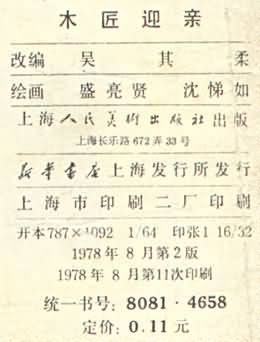 木匠迎亲
改编 吴其柔
绘画 盛亮贤 沈悌如
上海人民美术出版社出版
上海长乐路672弄33号
新华书店上海发行所发行
上海市印刷二厂印刷
开本787×1092 1/64 印张1 16/32
1978年8月第2版
1978年8月第11次印刷
统一书号：8081·4658
定价：0.11元